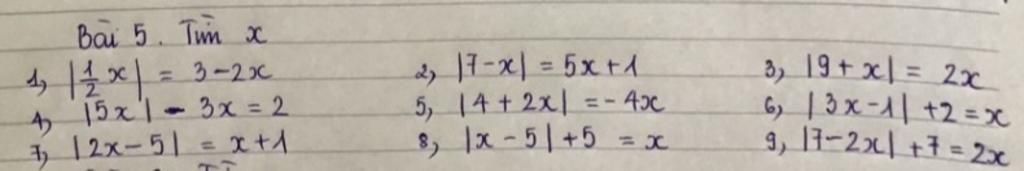 Bài 5. Tìm x
1, |1/2 x| = 3 - 2x 2, |7 - x| = 5x + 1 3, |9 + x| = 2x
4, |5x| - 3x = 2 5, |4 + 2x| = - 4x 6, |3x - 1| + 2 = x
7, |2x - 5| = x + 1 8, |x - 5| + 5 = x 9, |7 - 2x| + 7 = 2x